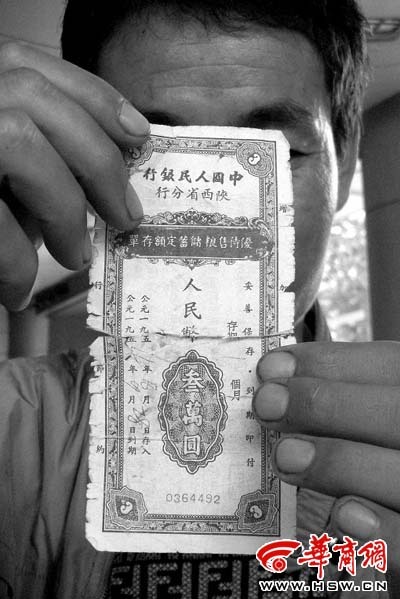 中國人民銀行
陝西省分行
優待售粮儲蓄定額存單
妥善保存·到期即付
存期 個月
人民幣
叁萬圓
公元一九五 年 月 日存入
公元一九五 年 月 日到期
0364492
華商網
WWW.HSW.CN